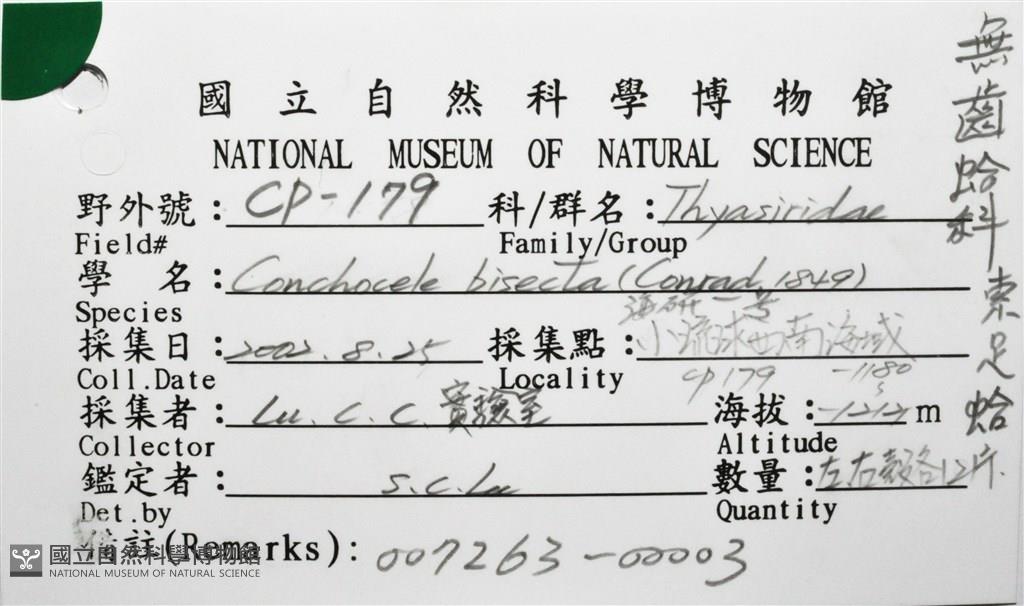 國立自然科學博物館
NATIONAL MUSEUM OF NATURAL SCIENCE
野外號：CP-179 科/群名：Thyasiridae
Field# Family/Group
學名：Conchocele bisecta (Conrad, 1849)
Species
海研一号
採集日：2002.8.25 採集點：小琉球西南海域
Coll.Date Locality CP179 -1180
採集者：Lu. C. C. 實驗室 海拔：-1212 m
Collector Altitude
鑑定者：S.C.Lu 數量：左右殼各12片.
Det.by Quantity
備註(Remarks)：007263-00003
無齒蛤科 索足蛤
國立自然科學博物館
NATIONAL MUSEUM OF NATURAL SCIENCE